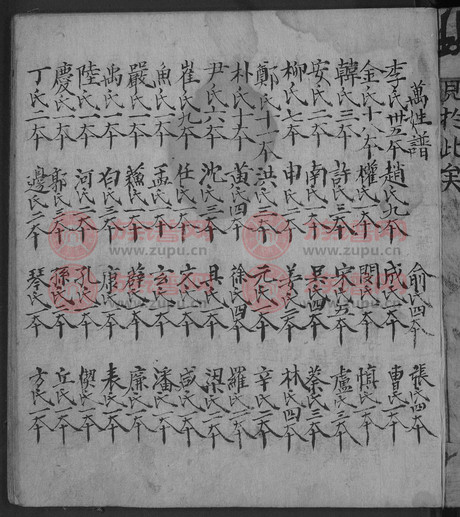 見於此矣
萬姓譜 俞氏四本 張氏四本
李氏卅五本 趙氏九本 成氏一本 曹氏一本
金氏十八本 權氏一本 閔氏一本 愼氏一本
韓氏三本 許氏三本 宋氏五本 盧氏三本
安氏二本 南氏一本 吳氏四本 蔡氏三本
柳氏七本 申氏二本 姜氏二本 林氏四本
鄭氏十一本 洪氏二本 元氏一本 辛氏二本
朴氏十本 黃氏四本 徐氏四本 羅氏二本
尹氏六本 沈氏三本 具氏一本 梁氏二本
崔氏九本 任氏二本 文氏一本 咸氏一本
魚氏一本 孟氏一本 玄氏一本 潘氏一本
嚴氏一本 氏一本 薛氏一本 廉氏一本
禹氏一本 氏三本 康氏一本 表氏一本
陸氏一本 河氏一本 孔氏一本 偰氏一本
慶氏一本 郭氏二本 孫氏一本 丘氏一本
丁氏二本 邊氏二本 琴氏一本 方氏一本
族谱网
www.zupu.cn
族谱网
www.zupu.cn
族谱网
www.zupu.cn
族谱网
www.zupu.cn